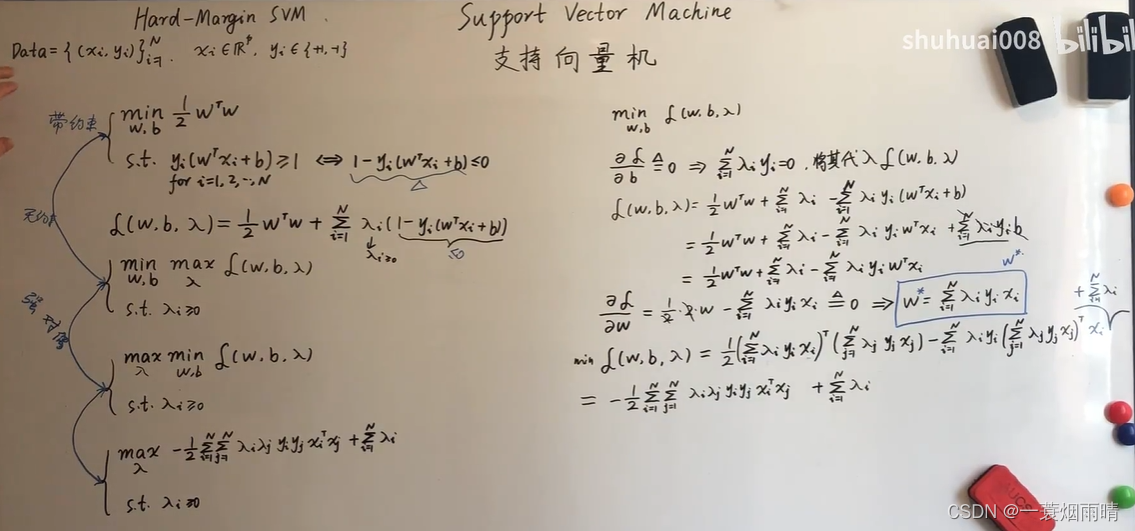 Hard-Margin SVM.
Support Vector Machine
支持向量机
shuhuai008 bilibil
Data = {(xi, yi)}_{i=1}^{N}, xi ∈ ℝ^p, yi ∈ {+1, -1}
带约束
min_{w,b} 1/2 w^T w
s.t. yi(w^T xi + b) ≥ 1 ⟺ 1 - yi(w^T xi + b) ≤ 0
for i=1,2,…,N
△
无约束
L(w, b, λ) = 1/2 w^T w + Σ_{i=1}^{N} λi (1 - yi(w^T xi + b))
λi ≥ 0
≤0
min_{w,b} max_{λ} L(w, b, λ)
s.t. λi ≥ 0
强对偶
max_{λ} min_{w,b} L(w, b, λ)
s.t. λi ≥ 0
max_{λ} -1/2 Σ_{i=1}^{N} Σ_{j=1}^{N} λi λj yi yj xi^T xj + Σ_{i=1}^{N} λi
s.t. λi ≥ 0
min_{w,b} L(w, b, λ)
∂L/∂b ≜ 0 ⇒ Σ_{i=1}^{N} λi yi = 0, 将其代入 L(w, b, λ)
L(w, b, λ) = 1/2 w^T w + Σ_{i=1}^{N} λi - Σ_{i=1}^{N} λi yi (w^T xi + b)
= 1/2 w^T w + Σ_{i=1}^{N} λi - Σ_{i=1}^{N} λi yi w^T xi + Σ_{i=1}^{N} λi yi b
= 1/2 w^T w + Σ_{i=1}^{N} λi - Σ_{i=1}^{N} λi yi w^T xi
w*
∂L/∂w = 1/2 · 2 · w - Σ_{i=1}^{N} λi yi xi ≜ 0 ⇒ w* = Σ_{i=1}^{N} λi yi xi
min L(w, b, λ) = 1/2 (Σ_{i=1}^{N} λi yi xi)^T (Σ_{j=1}^{N} λj yj xj) - Σ_{i=1}^{N} λi yi (Σ_{j=1}^{N} λj yj xj)^T xi + Σ_{i=1}^{N} λi
= -1/2 Σ_{i=1}^{N} Σ_{j=1}^{N} λi λj yi yj xi^T xj + Σ_{i=1}^{N} λi
CSDN @一蓑烟雨晴